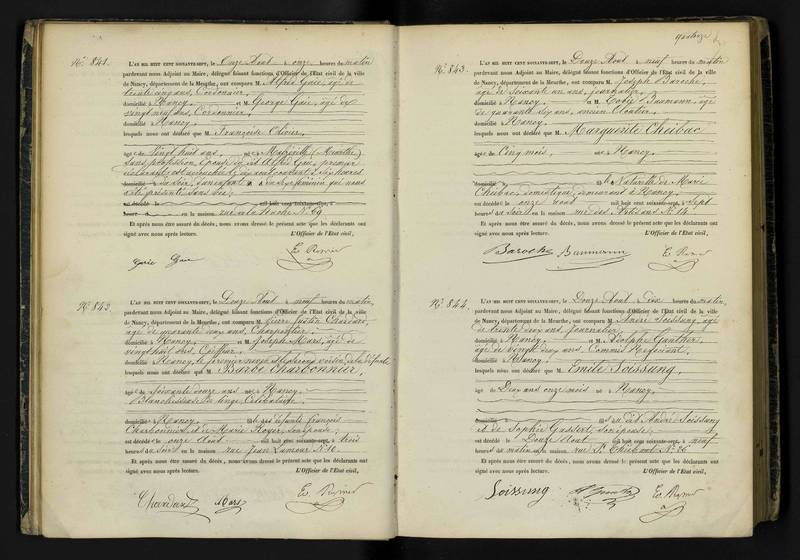 N° 841.
L'AN MIL HUIT CENT SOIXANTE-SEPT, le Onze Août à onze heures du matin
pardevant nous Adjoint au Maire, délégué faisant fonctions d'Officier de l'Etat civil de la ville
de Nancy, département de la Meurthe, ont comparu M. Alfred Gaie, âgé de
trente cinq ans, Cordonnier,
domicilié à Nancy, et M. George Gaie, âgé de
vingt neuf ans, Cordonnier,
domicilié à Nancy,
lesquels nous ont déclaré que M. Françoise Olivier,
âgée de Vingt huit ans, née à Maréville (Meurthe)
sans profession, épouse du dit Alfred Gaie, premier
déclarant, est accouchée
du soir, d'un enfant du sexe féminin qui nous
a été présenté sans vie,
est décédé le mil huit cent soixante-sept, à
heure en la maison rue de la N° 69
Et après nous être assuré du décès, nous avons dressé le présent acte que les déclarants ont
signé avec nous après lecture. L'Officier de l'Etat civil,
Gaie Gaie
N° 842.
L'AN MIL HUIT CENT SOIXANTE-SEPT, le Douze Août à neuf heures du matin,
pardevant nous Adjoint au Maire, délégué faisant fonctions d'Officier de l'Etat civil de la ville
de Nancy, département de la Meurthe, ont comparu M. Pierre Justin Chardard,
âgé de quarante deux ans, Charpentier,
domicilié à Nancy, et M. Joseph Mars, âgé de
vingt huit ans, Coiffeur,
domicilié à Nancy, le premier voisin de la défunte
lesquels nous ont déclaré que M. Barbe Charbonnier,
âgée de Soixante douze ans, née à Nancy
Blanchisseuse de linge, Célibataire,
domiciliée à Nancy fille des défunts François
Charbonnier et de Marie Royer, son épouse,
est décédée le onze Août mil huit cent soixante-sept, à trois
heures du soir en la maison rue Jean Lamour N° 10.
Et après nous être assuré du décès, nous avons dressé le présent acte que les déclarants ont
signé avec nous après lecture. L'Officier de l'Etat civil,
Mars
quatorze
N° 843.
L'AN MIL HUIT CENT SOIXANTE-SEPT, le Douze Août à neuf heures du matin
pardevant nous Adjoint au Maire, délégué faisant fonctions d'Officier de l'Etat civil de la ville
de Nancy, département de la Meurthe, ont comparu M. Joseph Baroche,
âgé de soixante un ans, journalier,
domicilié à Nancy, et M. Baumann, âgé
de quarante six ans, ancien Cloutier,
domicilié à Nancy,
lesquels nous ont déclaré que M. Marguerite Cheibac
âgée de Cinq mois, née à Nancy,
domiciliée à fille Naturelle de Marie
Cheibac, domestique, demeurant à Nancy,
est décédée le onze août mil huit cent soixante-sept, à Sept
heures du soir en la maison rue des Artisans N° 14
Et après nous être assuré du décès, nous avons dressé le présent acte que les déclarants ont
signé avec nous après lecture. L'Officier de l'Etat civil,
Baroche Baumann
N° 844.
L'AN MIL HUIT CENT SOIXANTE-SEPT, le Douze Août à Dix heures du matin,
pardevant nous Adjoint au Maire, délégué faisant fonctions d'Officier de l'Etat civil de la ville
de Nancy, département de la Meurthe, ont comparu M. André Soissung, âgé
de trente deux ans, journalier,
domicilié à Nancy, et M. Adolphe Gauthier,
âgé de vingt deux ans, Commis Négociant,
domicilié à Nancy,
lesquels nous ont déclaré que M. Emile Soissung,
âgé de Deux ans onze mois né à Nancy,
domicilié à fils du dit André Soissung
et de Sophie Gassert, son épouse,
est décédé le Douze Août mil huit cent soixante-sept, à neuf
heures du matin en la maison rue St Thiébaut N° 26
Et après nous être assuré du décès, nous avons dressé le présent acte que les déclarants ont
signé avec nous après lecture. L'Officier de l'Etat civil,
Soissung